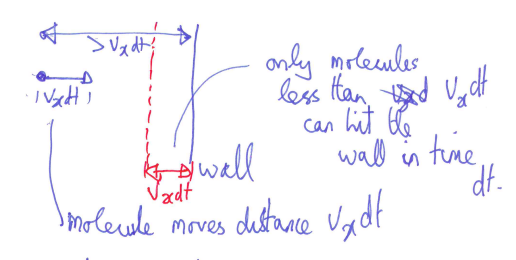 > Vxdt
Vxdt
only molecules
less than Vxdt
can hit the
wall in time
dt.
wall
Vxdt
molecule moves distance Vxdt